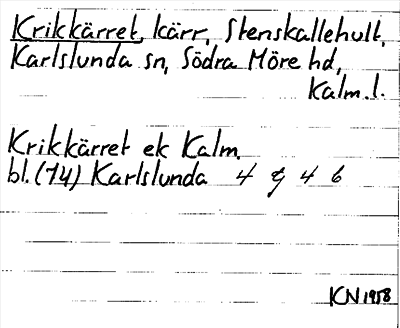 Krikkärret, kärr, Stenskallehult,
Karlslunda sn, Södra Möre hd,
Kalm.l.
Krikkärret ek Kalm.
bl.(74) Karlslunda 4 g 4 6
KN 1958